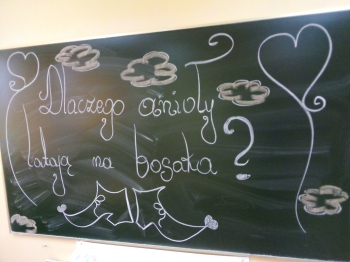 Dlaczego anioły
latają na bosaka?